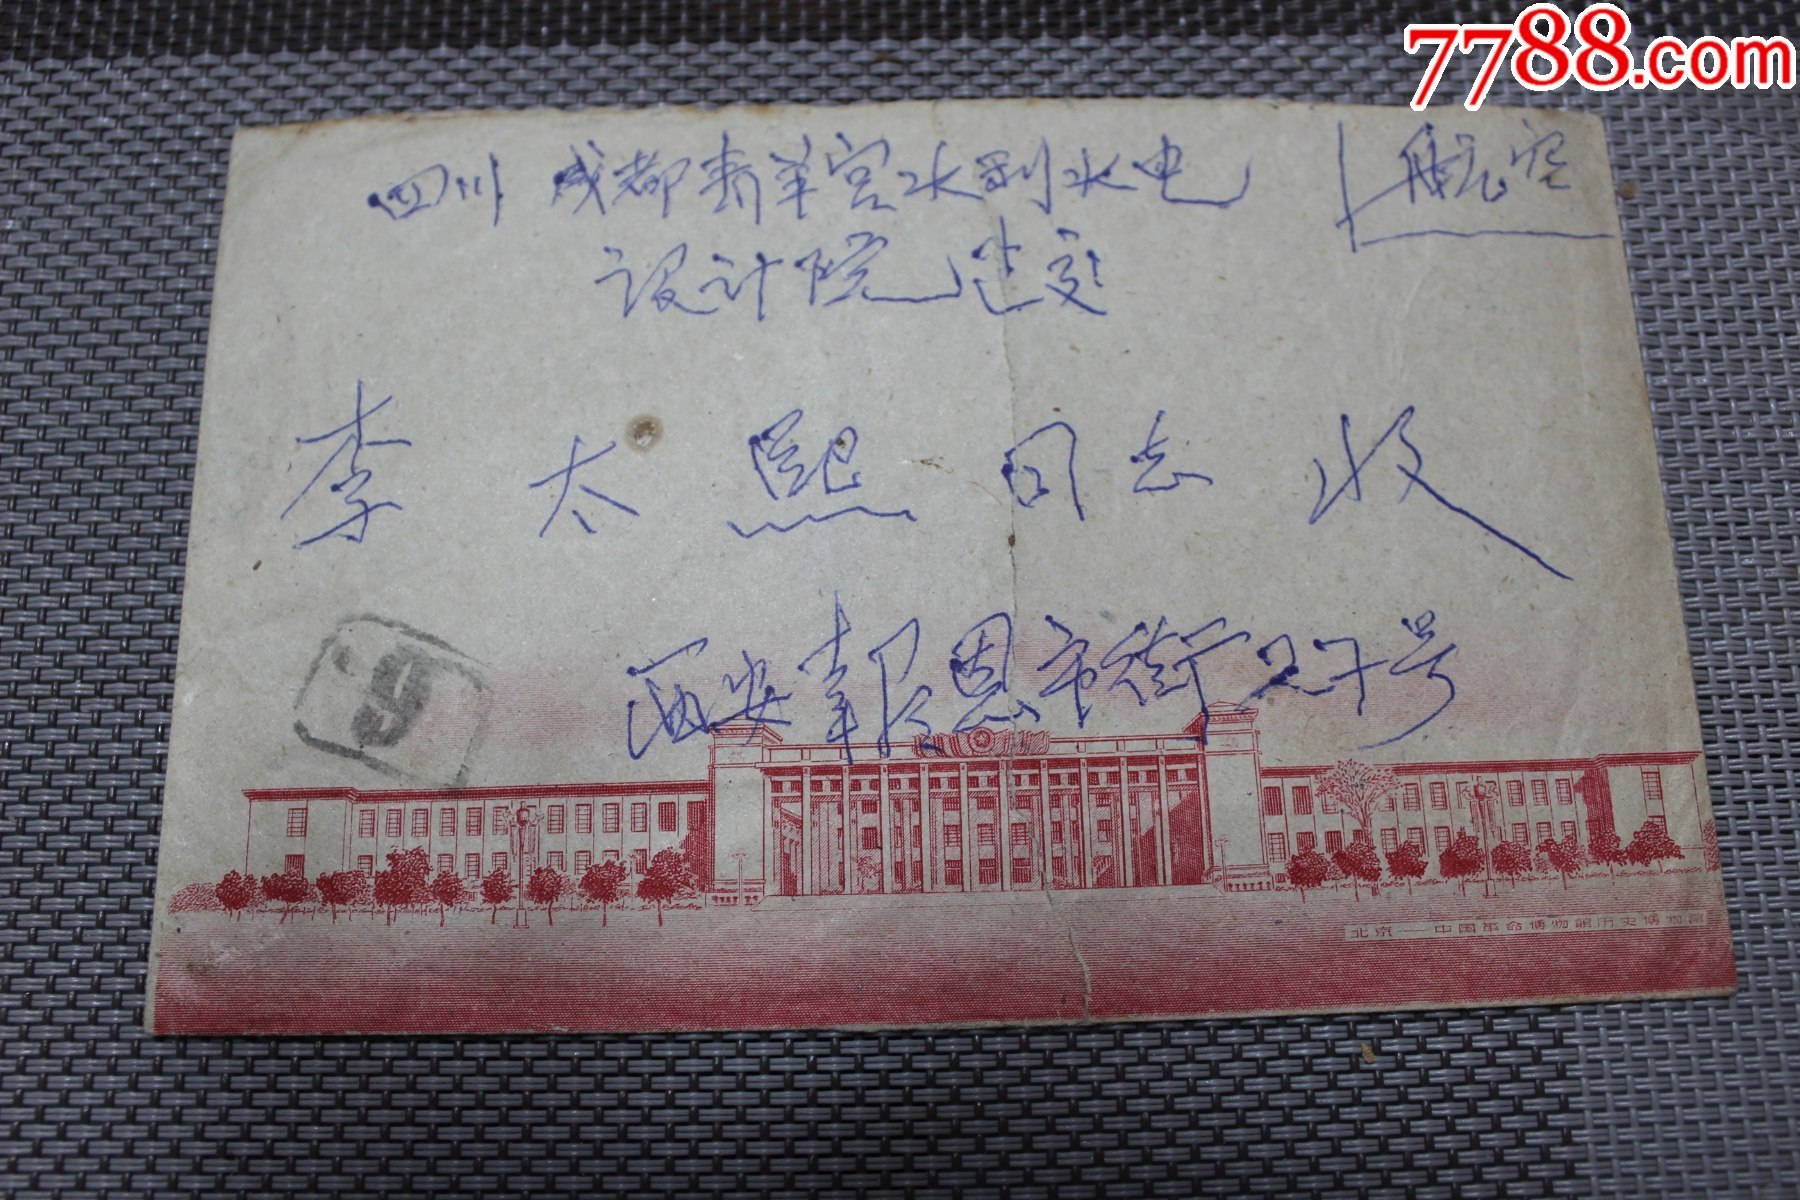 7788.com
四川 成都青羊宫水利水电
航空
设计院送交
李太熙同志收
西安報恩市街27号
北京——中国革命博物館历史博物館